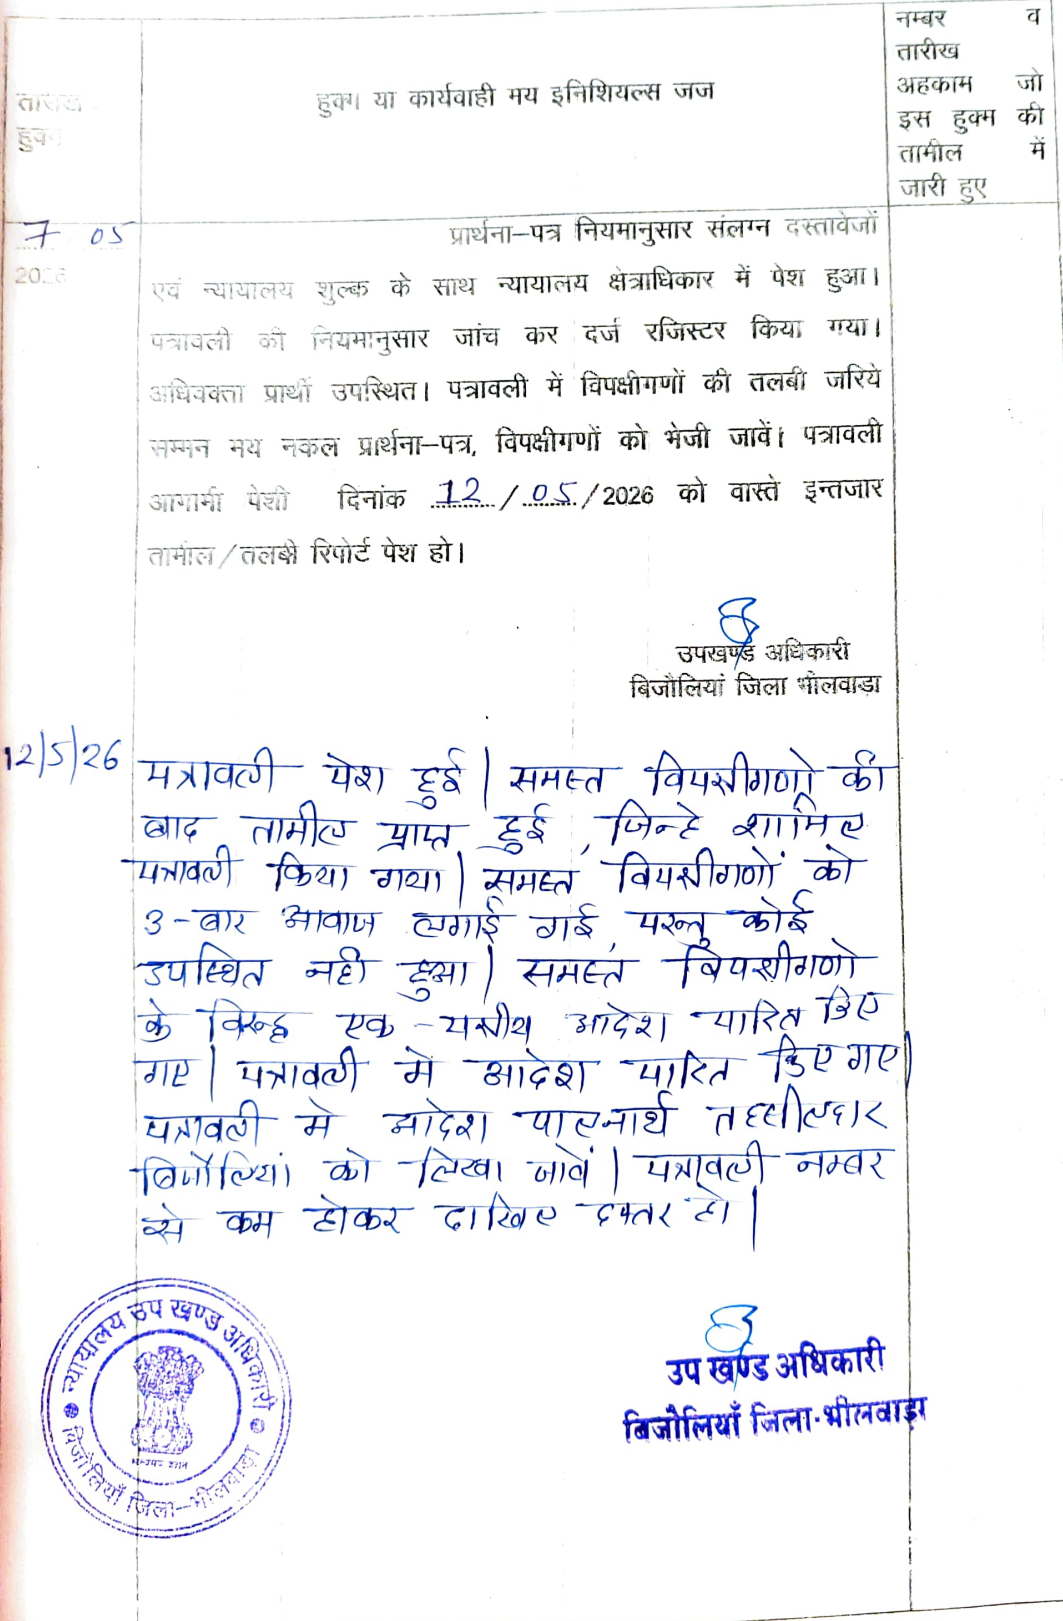 तारीख
हुक्म
हुक्म या कार्यवाही मय इनिशियल्स जज
नम्बर व
तारीख
अहकाम जो
इस हुक्म की
तामील में
जारी हुए
7 05
2026
प्रार्थना-पत्र नियमानुसार संलग्न दस्तावेजों
एवं न्यायालय शुल्क के साथ न्यायालय क्षेत्राधिकार में पेश हुआ।
पत्रावली की नियमानुसार जांच कर दर्ज रजिस्टर किया गया।
अधिवक्ता प्रार्थी उपस्थित। पत्रावली में विपक्षीगणों की तलबी जरिये
सम्मन मय नकल प्रार्थना-पत्र, विपक्षीगणों को भेजी जावें। पत्रावली
आगामी पेशी दिनांक 12/05/2026 को वास्ते इन्तजार
तामील/तलबी रिपोर्ट पेश हो।
उपखण्ड अधिकारी
बिजौलियां जिला भीलवाड़ा
12/5/26
पत्रावली पेश हुई। समस्त विपक्षीगणो की
बाद तामील प्राप्त हुई, जिन्हे शामिल
पत्रावली किया गया। समस्त विपक्षीगणों को
3-बार आवाज लगाई गई, परन्तु कोई
उपस्थित नही हुआ। समस्त विपक्षीगणो
के विरूद्ध एक-पक्षीय आदेश पारित किए
गए। पत्रावली मे आदेश पारित किए गए।
पत्रावली मे आदेश पालनार्थ तहसीलदार
बिजौलियां को लिखा जावें। पत्रावली नम्बर
से कम होकर दाखिल दफ्तर हो।
न्यायालय उप खण्ड अधिकारी
बिजौलियाँ जिला-भीलवाड़ा
उप खण्ड अधिकारी
बिजौलियाँ जिला-भीलवाड़ा